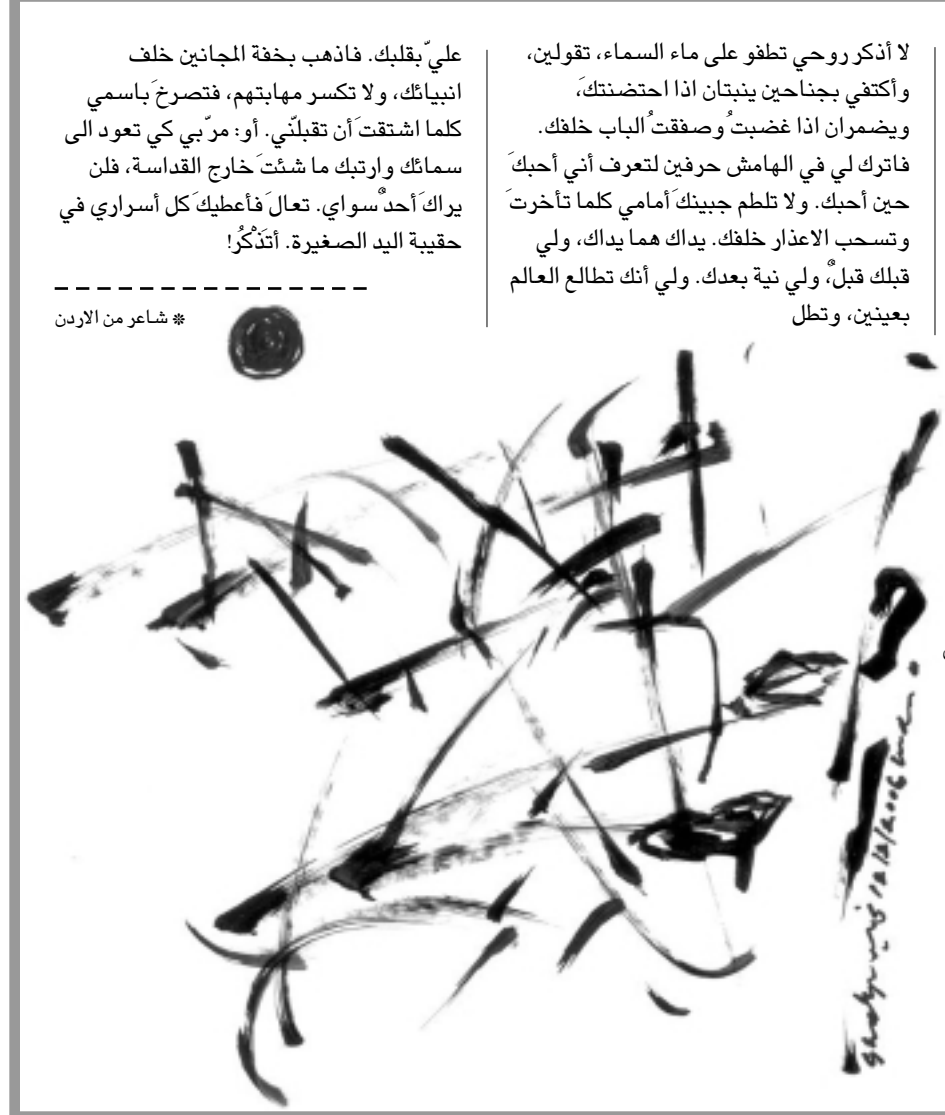 لا أذكر روحي تطفو على ماء السماء، تقولين،
وأكتفي بجناحين ينبتان اذا احتضنتكَ،
ويضمران اذا غضبتُ وصفقتُ الباب خلفك.
فاترك لي في الهامش حرفين لتعرف أني أحبكَ
حين أحبك. ولا تلطم جبينكَ أمامي كلما تأخرتَ
وتسحب الاعذار خلفك. يداك هما يداك، ولي
قبلك قبلٌ، ولي نية بعدك. ولي أنك تطالع العالم
بعينين، وتطل
عليّ بقلبك. فاذهب بخفة المجانين خلف
انبيائك، ولا تكسر مهابتهم، فتصرخَ باسمي
كلما اشتقتَ أن تقبلّني. أو: مرّ بي كي تعود الى
سمائك وارتبك ما شئتَ خارج القداسة، فلن
يراكَ أحدٌ سواي. تعالَ فأعطيكَ كل أسراري في
حقيبة اليد الصغيرة. أتَذْكُرُ!
❊ شاعر من الاردن
12/12/2006